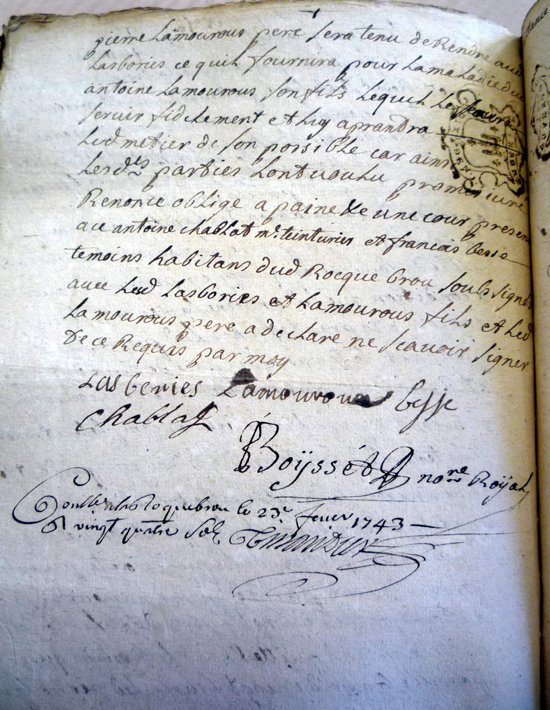 pierre Lamourous pere sera tenu de Rendre aud
Lasbories ce quil fournira pour la meladie dud
antoine Lamourous son fils Lequil
servir fidelement et luy aprandra
Led metier de son possible car ainsi
Lesdes parties L'ont voulu promis jure
Renoncé obligé a paine &e une cour presen
ace antoine chablat Me teinturier et francais besse
temoins habitans dud Rocque brou soubs signés
avec Led Lasbories et Lamourous fils et Led
Lamourous pere a declaré ne scavoir signer
de ce Requis par moy
Lasberies Lamouroux besse
Chablat
Boyssét nore Royal
Contlle a la roquebrou le 23e fevr 1743
R vingt quatre sols